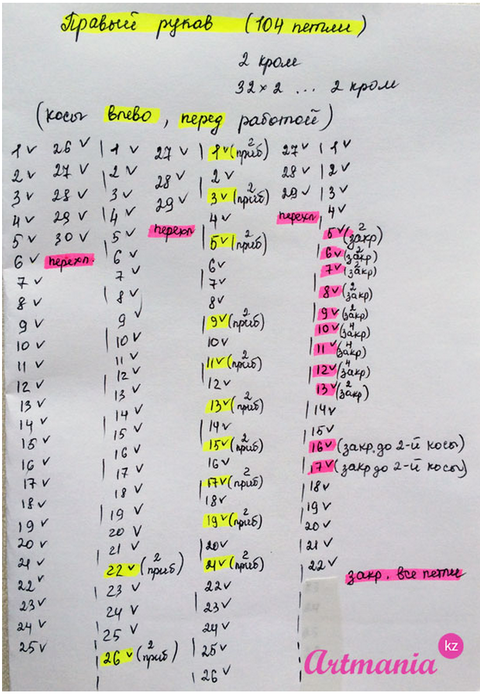 Правый рукав (104 петли)
2 кром
32 x 2 ... 2 кром
(косы влево, перед работой)
1 v
2 v
3 v
4 v
5 v
6 v
7 v
8 v
9 v
10 v
11 v
12 v
13 v
14 v
15 v
16 v
17 v
18 v
19 v
20 v
21 v
22 v
23 v
24 v
25 v
26 v
27 v
28 v
29 v
30 v
перехл.
1 v
2 v
3 v
4 v
5 v
6 v
7 v
8 v
9 v
10 v
11 v
12 v
13 v
14 v
15 v
16 v
17 v
18 v
19 v
20 v
21 v
22 v (2 приб)
23 v
24 v
25 v
26 v (2 приб)
27 v
28 v
29 v
перехл
1 v (2 приб)
2 v
3 v (2 приб)
4 v
5 v (2 приб)
6 v
7 v
8 v
9 v (2 приб)
10 v
11 v (2 приб)
12 v
13 v (2 приб)
14 v
15 v (2 приб)
16 v
17 v (2 приб)
18 v
19 v (2 приб)
20 v
21 v (2 приб)
22 v
23 v
24 v
25 v
26 v
27 v
28 v
29 v
перехл
1 v
2 v
3 v
4 v
5 v (2 закр)
6 v (2 закр)
7 v (2 закр)
8 v (2 закр)
9 v (2 закр)
10 v (4 закр)
11 v (4 закр)
12 v (4 закр)
13 v (2 закр)
14 v
15 v
16 v (закр. до 2-й косы)
17 v (закр. до 2-й косы)
18 v
19 v
20 v
21 v
22 v
закр. все петли
Artmania kz